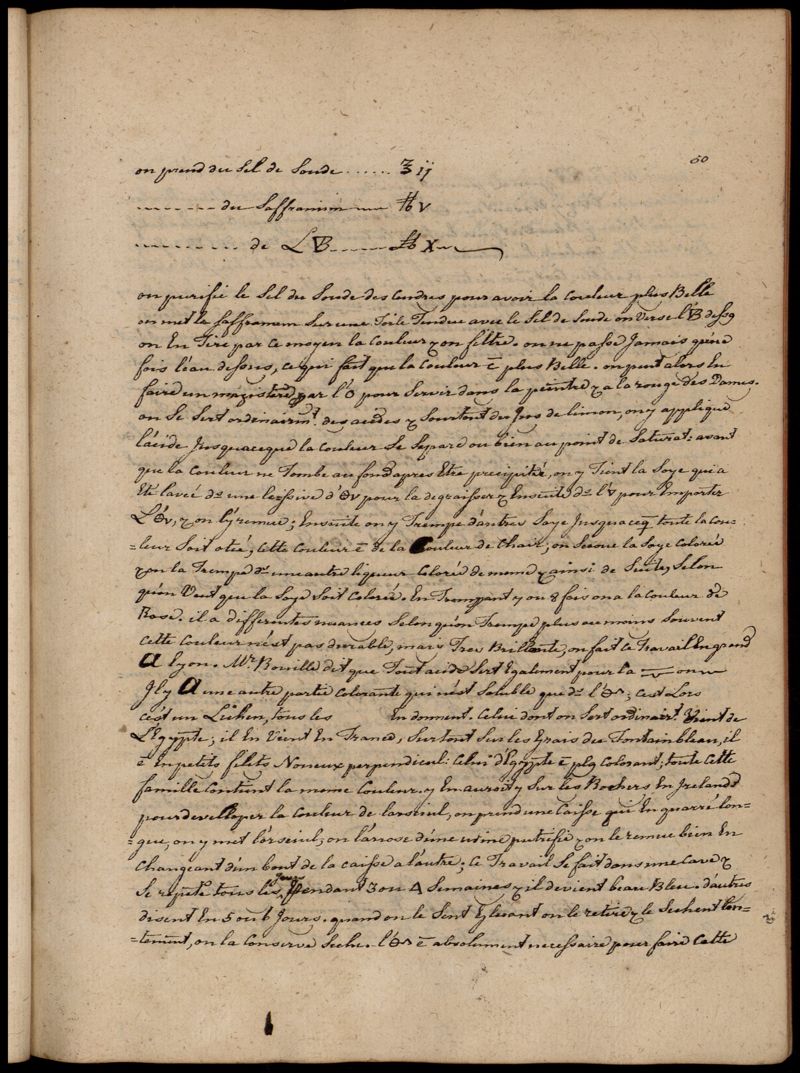 50
on prend du Sel de Soude ...... ʒ ij
......... du Saffranum ℔ v
........... de L▽B ...... ℔ X
on purifie le Sel du Soude des cendres pour avoir la couleur plus Belle
on met le Saffranam Sur une Toile Tendue avec le Sel de Soude on Verse l'▽B dessg
on En Tire par ce moyen la Couleur & on filtre. on ne passe Jamais qu'une
fois l'eau dessus, ce qui fait que la Couleur ē plus Belle. on peut alors En
faire un magistere par l'O pour Servir dans la peintre & a la rouge des Dames.
on Se Sert ordenairmt. des acides & Sourtout du Jus de limon, on y applique
l'acide Jusquaceque la couleur Se Separe ou bien au point de Saturat: avant
que la Couleur ne Tombe au fond apres Etre precipité, on y Tient la Soye qui a
Eté lavée ds une lessive d' pour la degraisser & Ensuite ds l'▽ pour Emporter
L', & on l'y remue; Ensuite on y Trempe d'autres Soye Jusquaceq toute la cou-
=leur Soit otée; cette Couleur ē de la Couleur de Chair; on Secoue la Soye Colorée
& on la Trempe ds une autre liqueur Colorée de meme & ainsi de Suite, Selon
qu'on Veut que la Soye Soit Colorée. En Trempant 7 ou 8 fois on a la Couleur de
Rose. il a differentes nuances Selon qu'on Trempe plus au moins Souvent
cette Couleur n'est pas durable, mais Tres Brillante, on fait ce Travail En grand
A lyon. Mr. Rouille dit que Tout acide Sert Egalement pour la
Il y A une autre partie Colorante qui n'est Soluble que ds l'; c'est Lors
c'est un Lichen, tous les En donnent. Celui dont on Sert ordinairt. Vient de
L'Egypte; il En Vient En France, Surtout Sur les Grais de Fontainbleau, il
ē En petits filets Noneux perpendicul: Celui d'Egypte ē plg Colorant; toute Cette
famille Contient la meme Couleur. y En auroit y Sur les Rochers En Irelande
pour developer la Couleur de larseiul, on prend une Caisse qui En quarré lon-
=gue, on y met l'orseiul; on l'arrose d'une urine putrefié & on le remue bien En
Changeant d'un bout de la caisse a l'autre; Ce Travail Se fait dans une Cave &
Se repete tous les jours, Pendant 3 ou 4 Semaines & il devient beau Bleu. d'autres
disent En 5 ou 6 Jours. quand on le Sent on le retire & le Sechent len-
=tement, on la Conserve Seche. l' ē absolument necessaire pour faire Cette